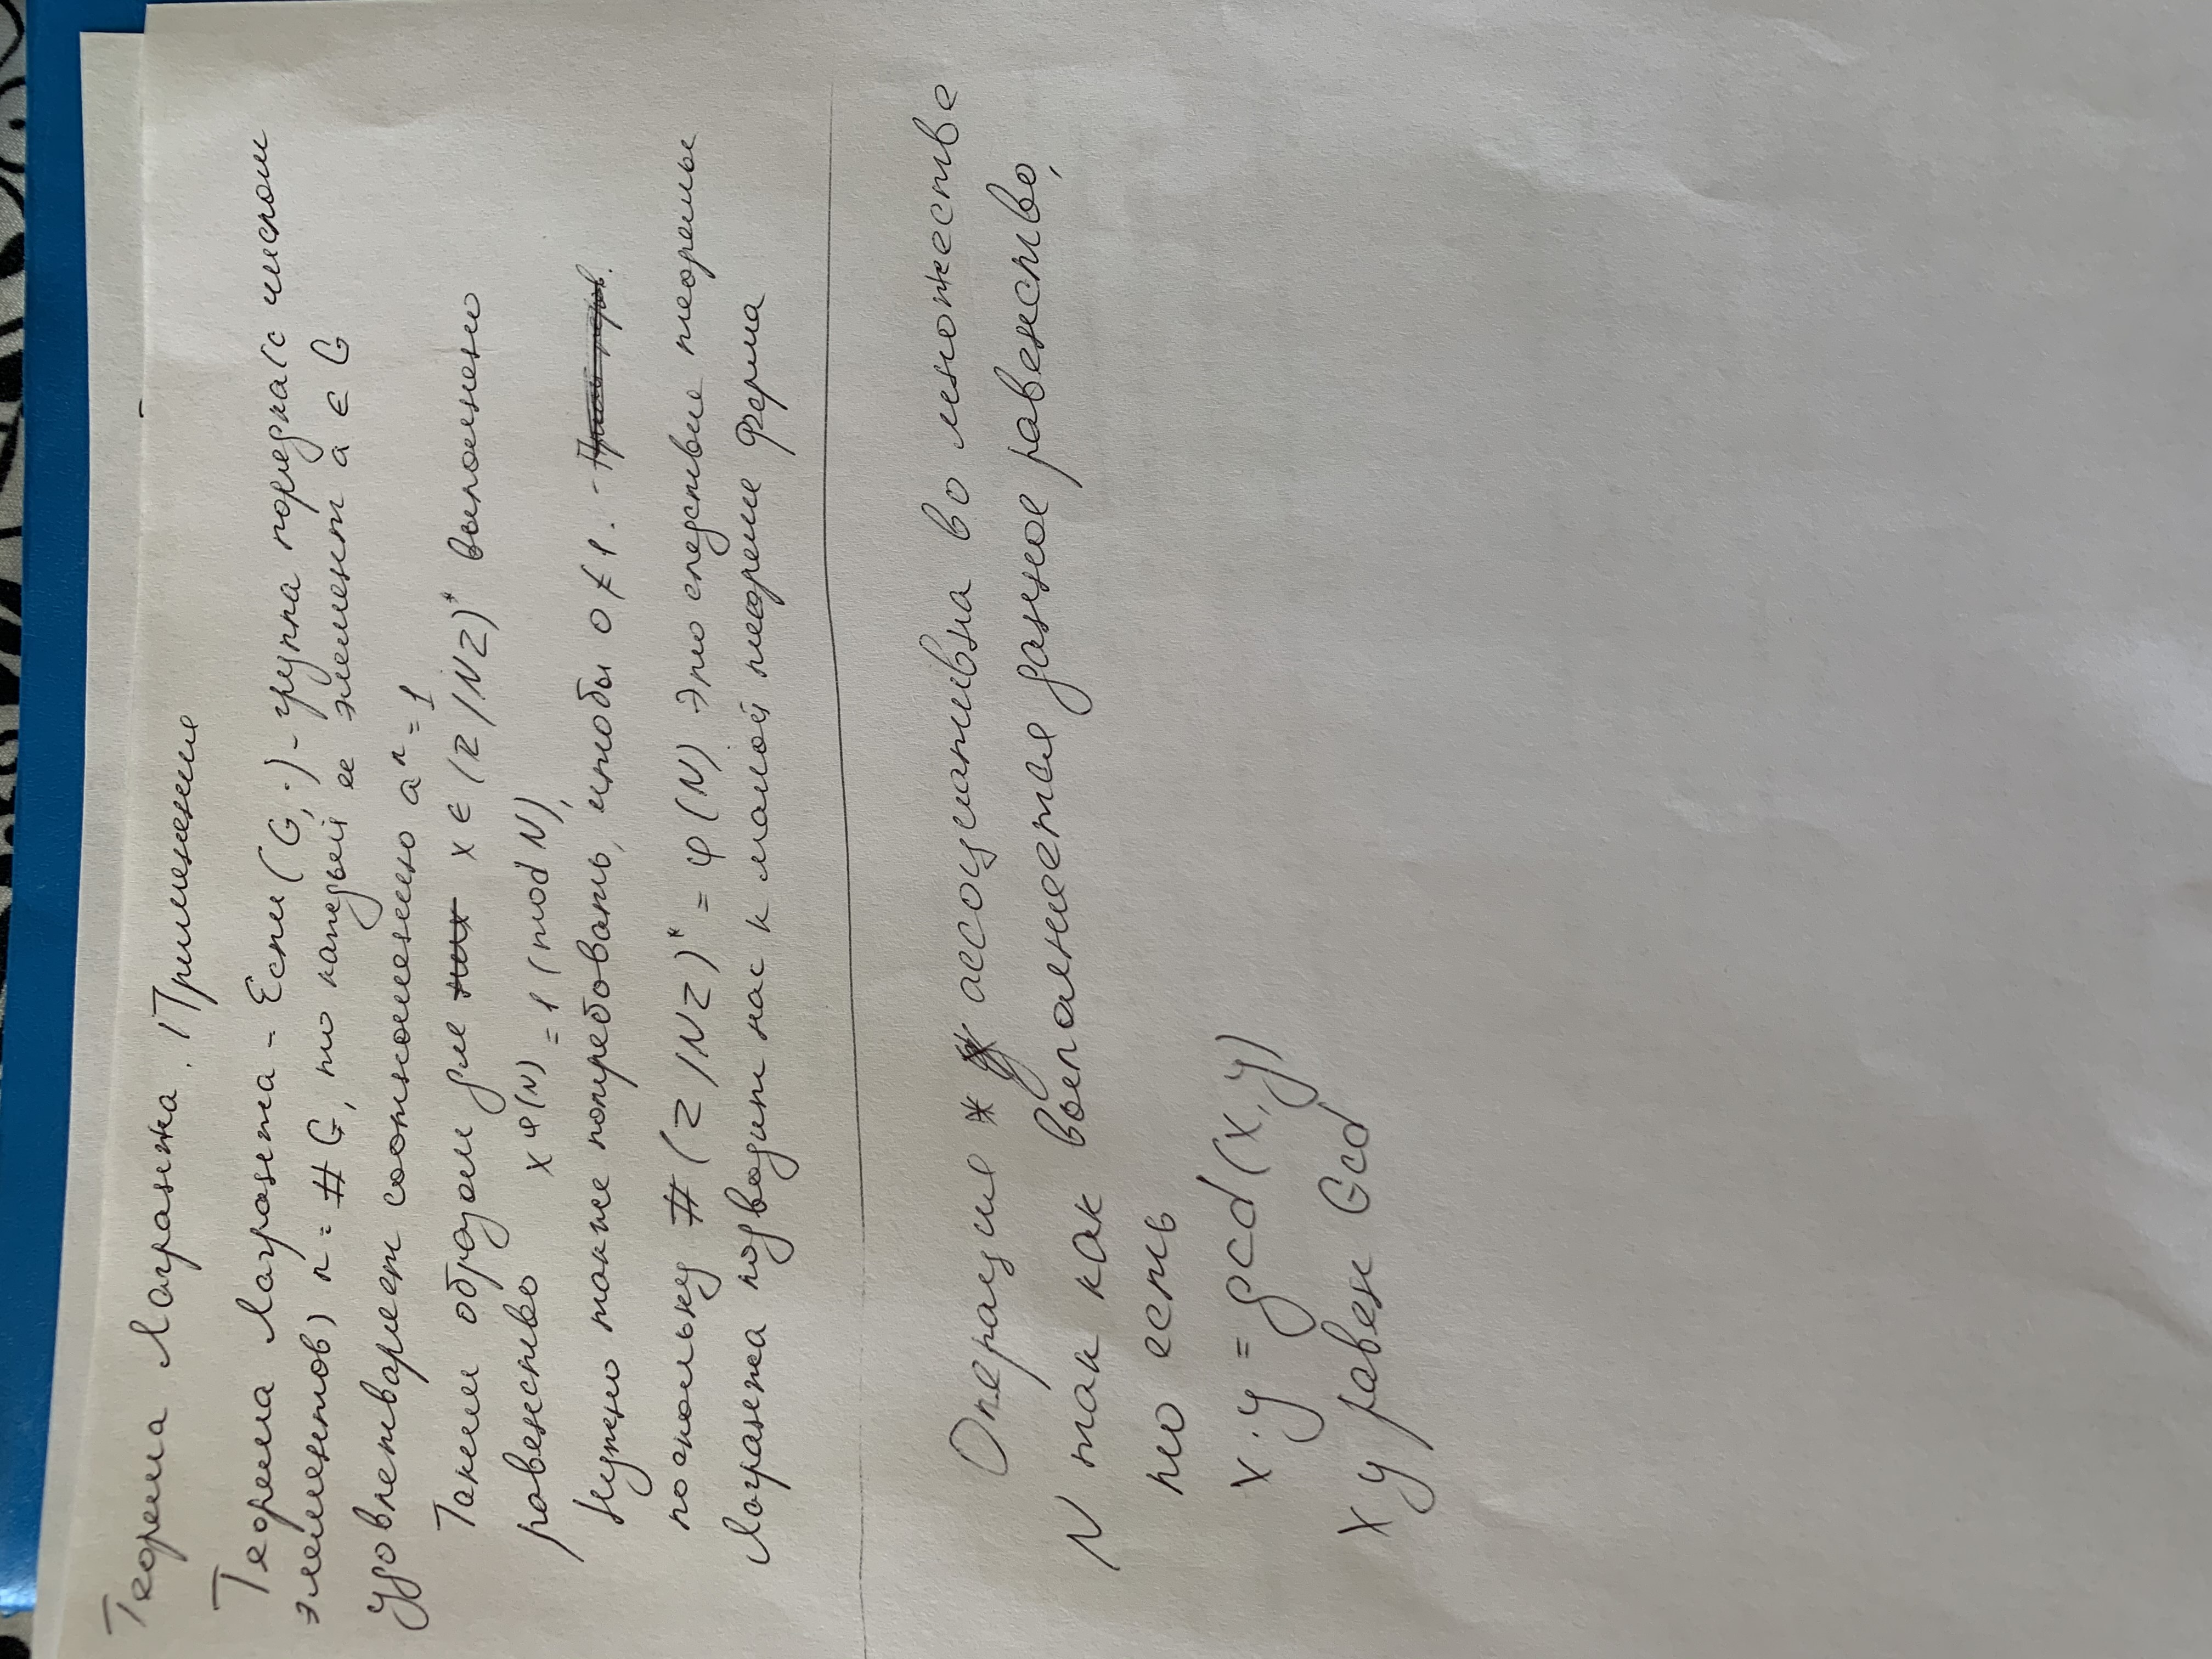 Теорема Лагранжа. Применение
Теорема Лагранжа - Если (G, ·) - группа порядка (с числом
элементов) n = # G, то каждый ее элемент a ∈ G
удовлетваряет соотношению aⁿ = 1
Таким образом для них x ∈ (Z/NZ)* выполнено
равенство x^φ(N) = 1 (mod N),
Нужно также потребовать, чтобы 0 ≠ 1. -
поскольку # (Z/NZ)* = φ(N) Это следствие теоремы
Лагранжа подводит нас к малой теореме Ферма
Операция * ассоциативна во множестве
N так как выполняется данное равенство,
то есть
x · y = gcd(x, y)
x y равен Gcd